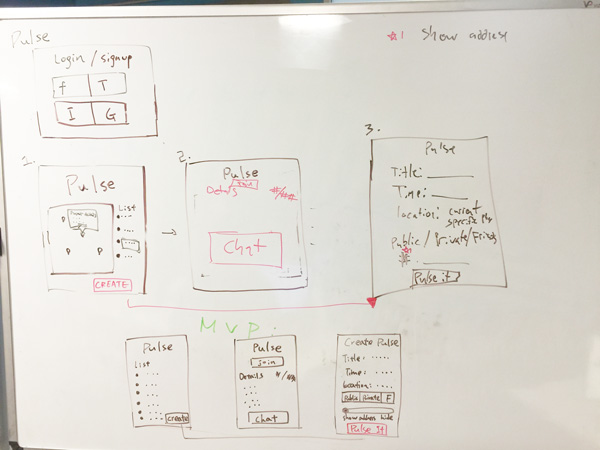 Pulse
Login / signup
f T
I G
*1 Show address
1.
Pulse
List
CREATE
2.
Pulse
Join
Details #/##
Chat
3.
Pulse
Title:
Time:
Location: current
specific
Public / Private / Friends
*1
Pulse it
MVP.
Pulse
List
Create
Pulse
Join
Details #/##
Chat
Create Pulse
Title:
Time:
Location:
Public Private F
show address hide
Pulse It